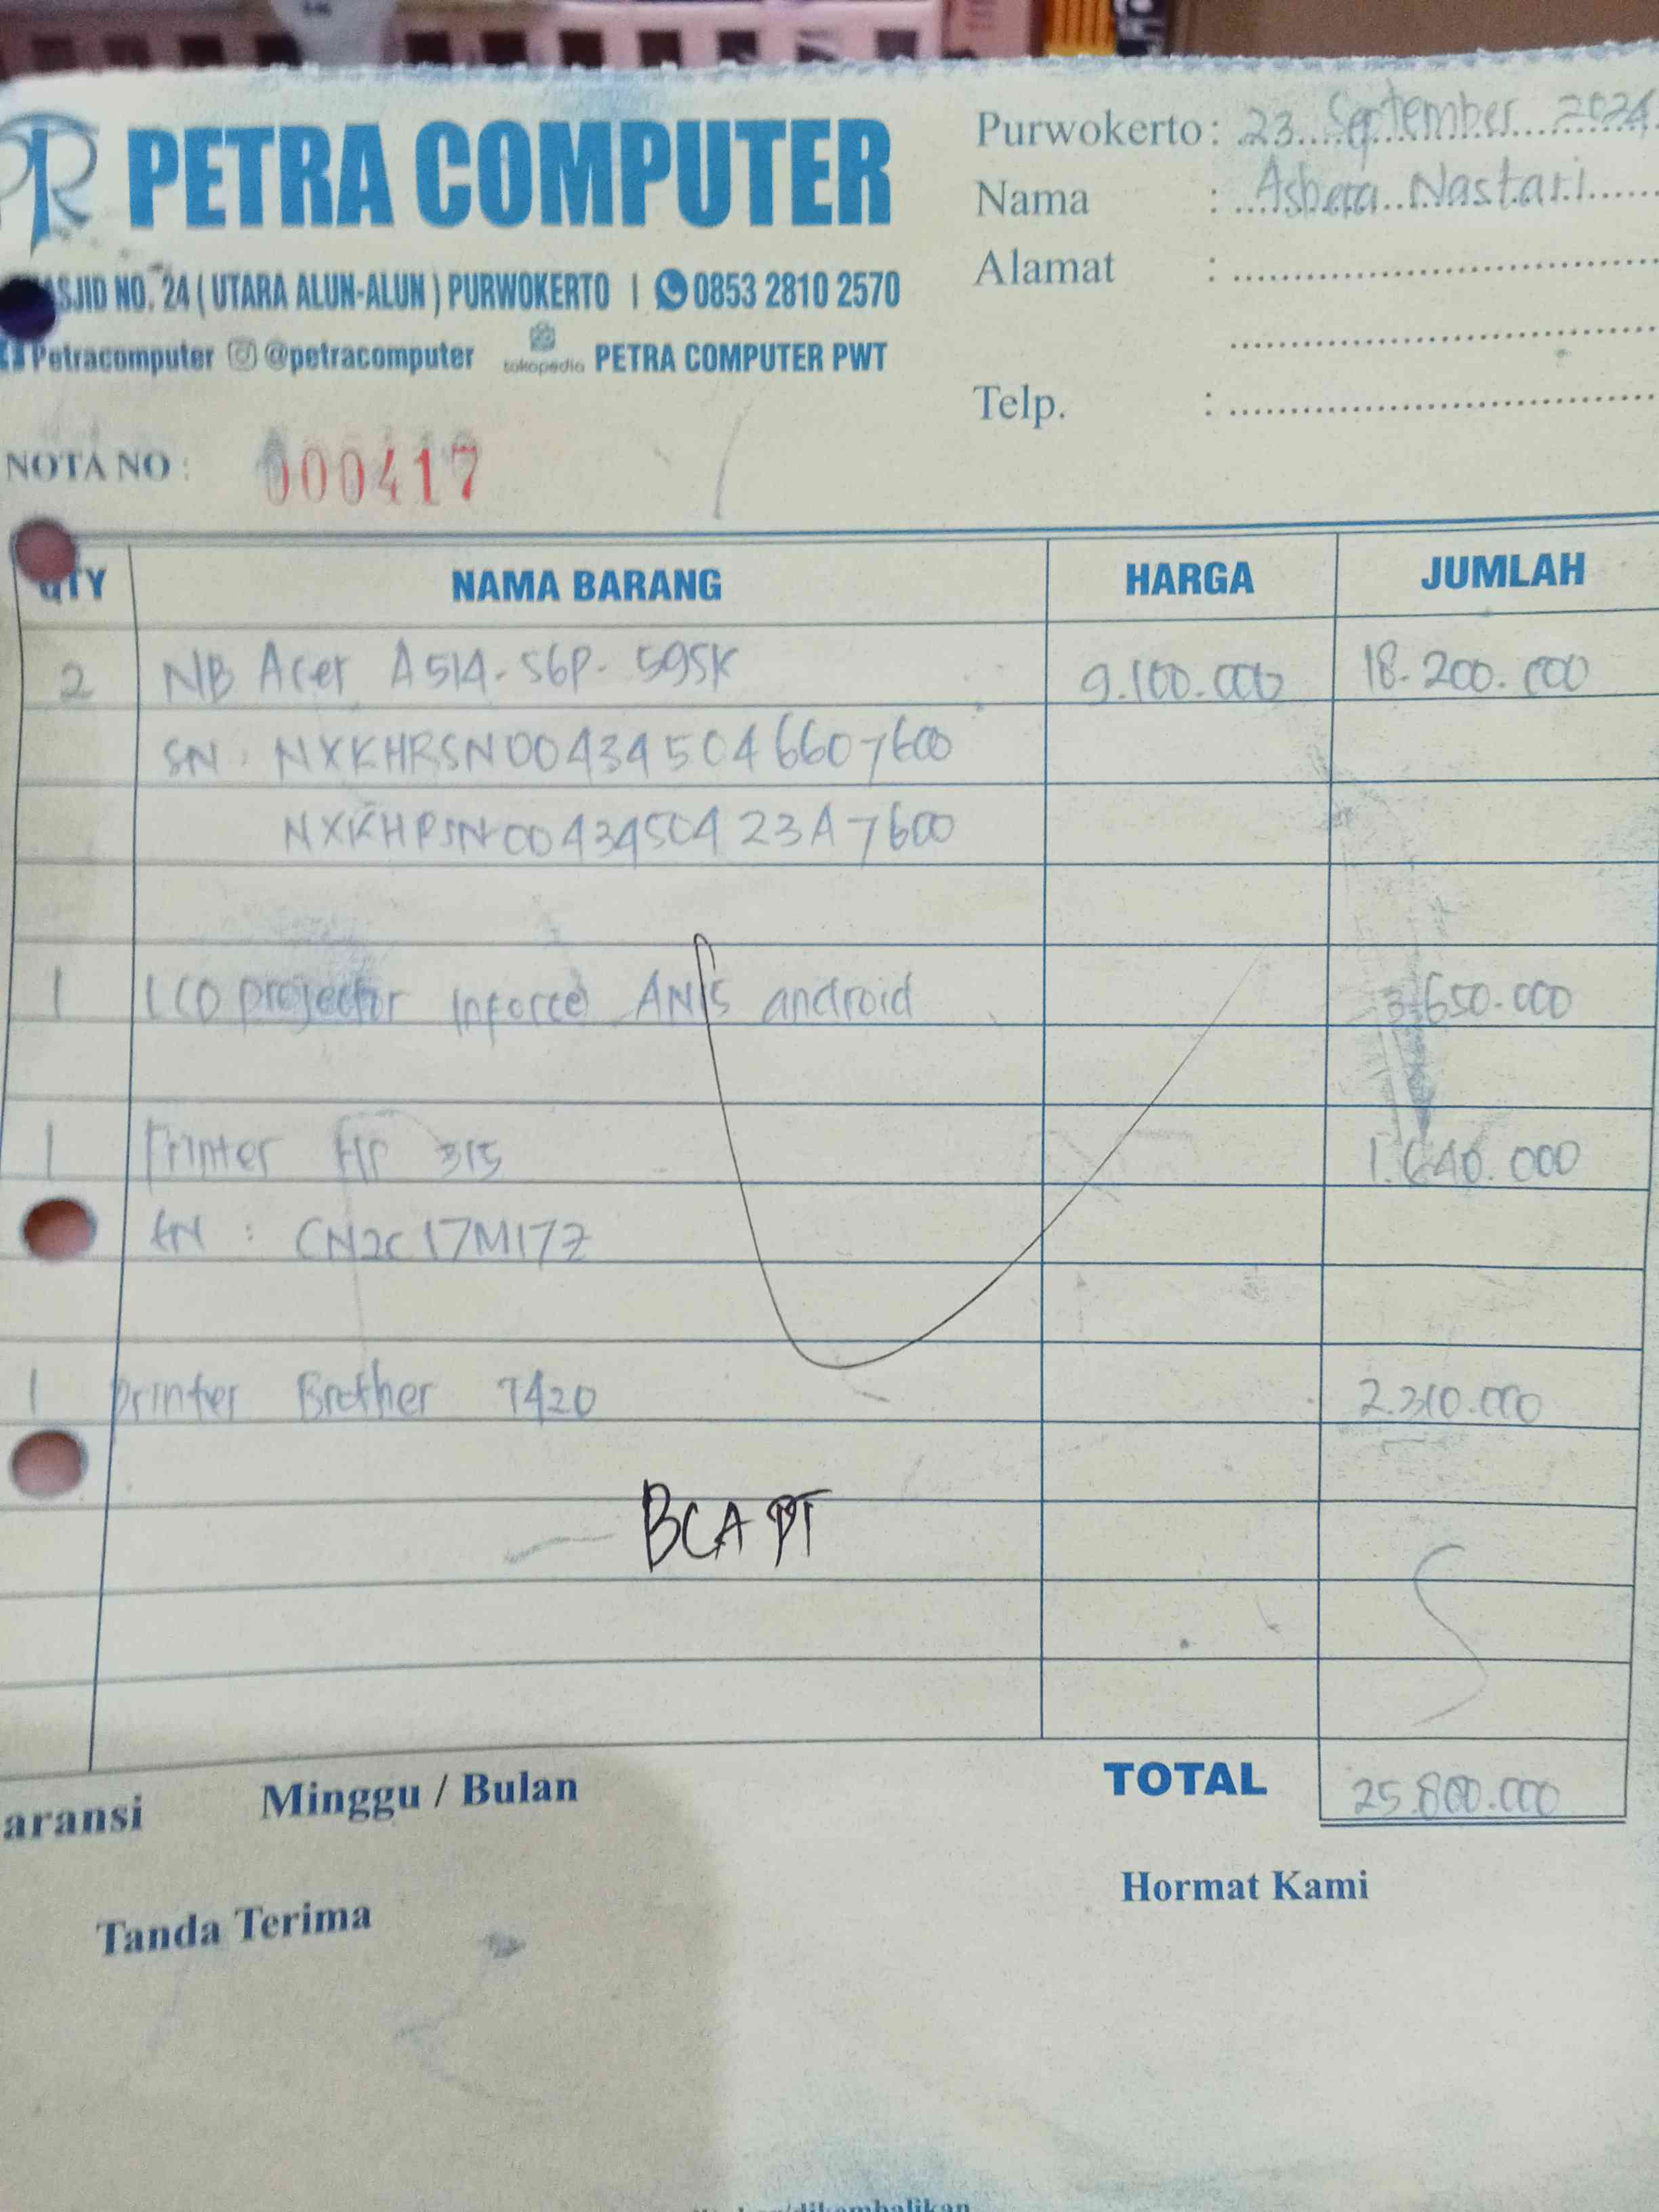 PETRA COMPUTER
ASJID NO. 24 ( UTARA ALUN-ALUN ) PURWOKERTO | 0853 2810 2570
Petracomputer @petracomputer tokopedia PETRA COMPUTER PWT
Purwokerto : 23 September 2024
Nama : Nastari
Alamat :
Telp. :
NOTA NO : 000417
QTY NAMA BARANG HARGA JUMLAH
2 NB Acer A514-56P-595K 9.100.000 18.200.000
SN : NXKHRSN004345046607600
NXKHRSN004345042 3A7600
1 LCD projector Inforce android 3.650.000
1 Printer HP 315 1.640.000
SN : CN2C17M17Z
1 Printer Brother 7420 2.310.000
BCA PT
aransi Minggu / Bulan TOTAL 25.800.000
Tanda Terima Hormat Kami